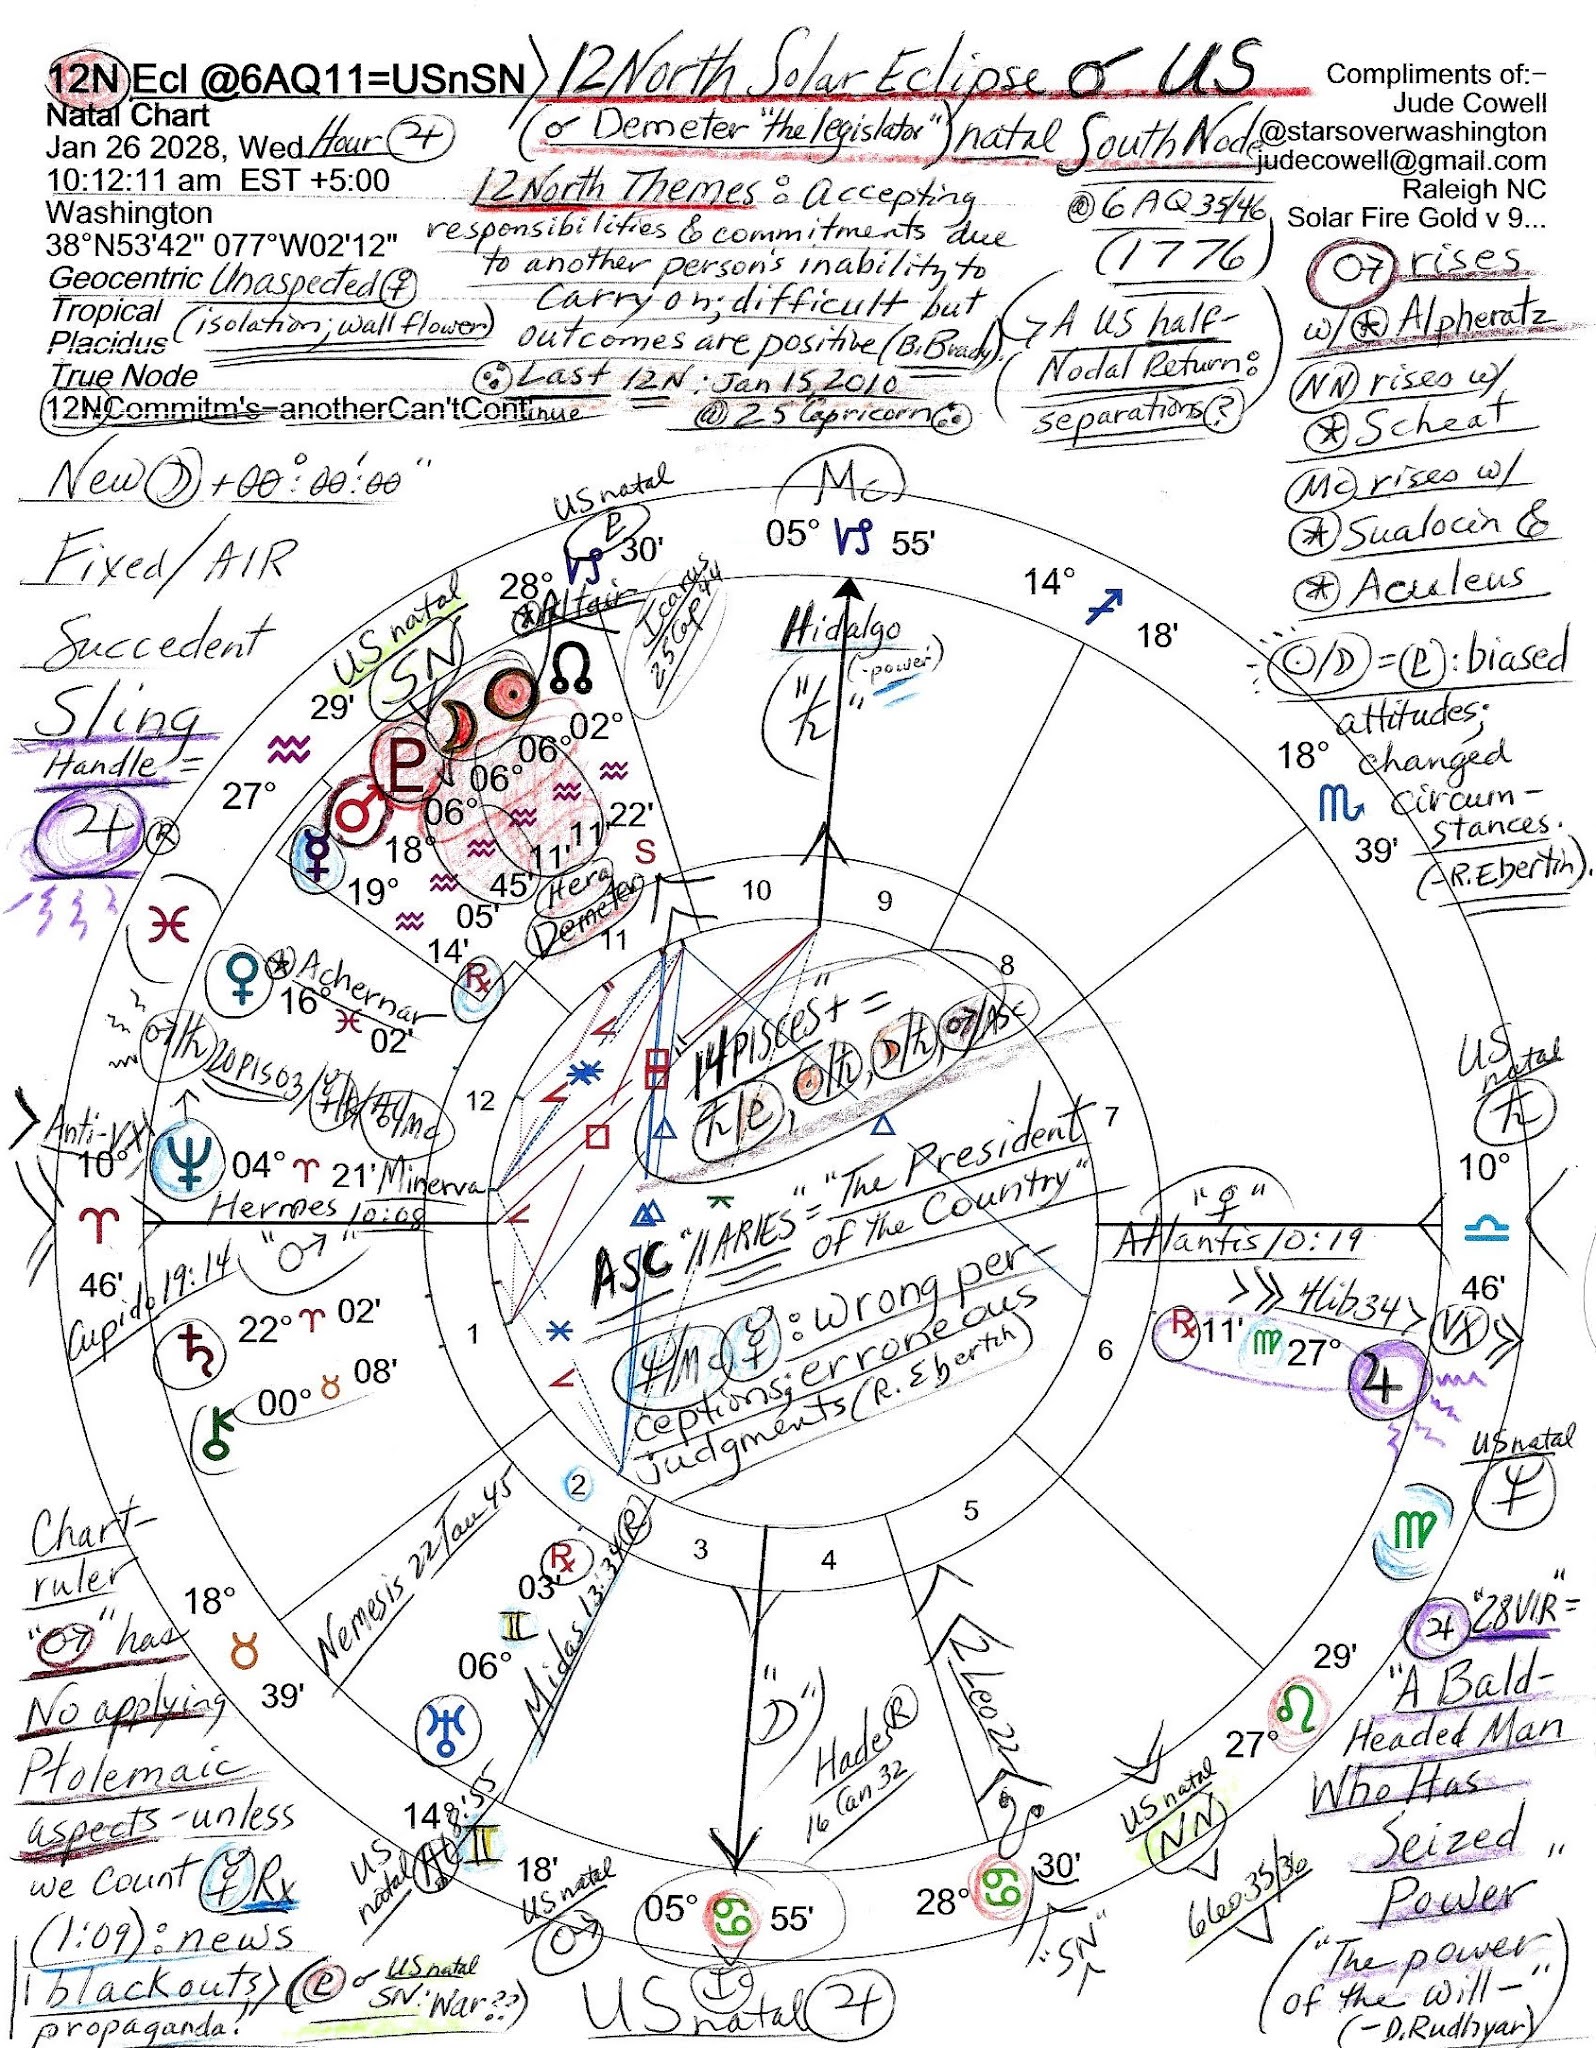 12N Ecl @6AQ11=USnSN
Natal Chart
Jan 26 2028, Wed Hour ♃
10:12:11 am EST +5:00
Washington
38°N53'42" 077°W02'12"
Geocentric Unaspected ♀
Tropical (isolation; wallflower)
Placidus
True Node
12NCommitm's-anotherCan'tContinue
12North Solar Eclipse ☌ US
(☌ Demeter "the legislator") natal South Node
@ 6 AQ 35/46
(1776)
12North Themes: Accepting
responsibilities & commitments due
to another person's inability to
carry on; difficult but
outcomes are positive (B. Brady).
Last 12N: Jan 15, 2010
@ 25 Capricorn
→ A US half-
Nodal Return:
separations?
Compliments of:-
Jude Cowell
@starsoverwashington
judecowell@gmail.com
Raleigh NC
Solar Fire Gold v 9...
♂ rises
w/ * Alpheratz
NN rises w/
* Scheat
Mc rises w/
* Sualocin &
* Aculeus
☉/☽ = ♇: biased
attitudes;
changed
circum-
stances.
(-R. Ebertin).
New ☽ +00°:00':00"
Fixed/AIR
Succedent
Sling
Handle =
♃ R
Mc
05° ♑ 55'
US natal
♇
28° ♑ 30'
* Altair
Icarus
25 Cap 44
14° ♐ 18'
Hidalgo
(-power)
"♄"
18° ♏ 39'
US natal
SN
27° ♒ 29'
☊ 02° ♒ 22' S
☉ 06° ♒ 11'
☽ 06° ♒ 11'
♇ 06° ♒ 45'
♂ 18° ♒ 05'
☿ 19° ♒ 14' ℞
Hera
Demeter
♓
♀ * Achernar
16° ♓ 02'
♂/♄ 20 PIS 03/☿/♅/Mc
Anti-Vx
♆ 04° ♈ 21' Minerva
Hermes 10:08
10° ♈ 46'
"♂"
Cupido 19:14
♄ 22° ♈ 02'
⚷ 00° ♉ 08'
"14 PISCES+" =
♄/♇, ☉/♄, ☽/♄, ♂/Asc
ASC "11 ARIES" = "The President
of the Country"
♆/Mc ☿: wrong per-
ceptions; erroneous
judgments (R. Ebertin)
1
2
3
4
5
6
7
8
9
10
11
12
US natal
♄
10° ♎ 46'
"♀"
Atlantis 10:19
>>> 4 Lib 34 > Vx >>
℞ 11' ♍ 27° ♃
US natal
♆
♍
♃ "28 VIR" =
"A Bald-
Headed Man
Who Has
Seized
Power"
("The power
of the will-"
(-D. Rudhyar)
29' ♌ 27°
US natal
NN
6 Leo 35/36
2 Leo 22
28° ♋ 30'
"SN"
Hades ℞
16 Can 32
"☽"
05° ♋ 55'
US natal ♃
US natal
♂
US natal
8:55
14° ♊ 18'
Midas 13:34 ℞
℞ 03' ♊ 06° ♅
Nemesis 22 Tau 45
18° ♉ 39'
Chart-
ruler
"♂" has
No applying
Ptolemaic
aspects - unless
we count ☿ Rx
(1:09): news
blackouts,
propaganda!
(♇ ☌ US natal
SN: War??)